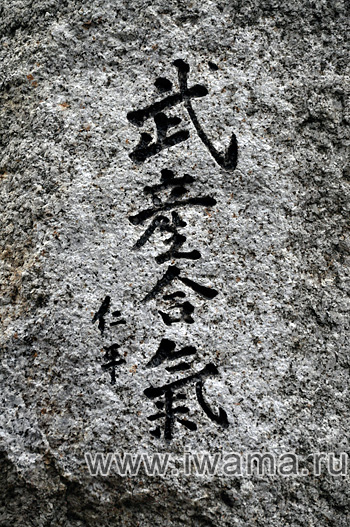 武産合氣
仁平
www.iwama.ru